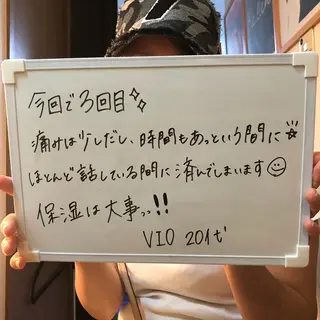 今回で3回目✨
痛みは少しだし、時間もあっという間に☆
ほとんど話している間に済んでしまいます☺
保湿は大事っっ!!
VIO 20代